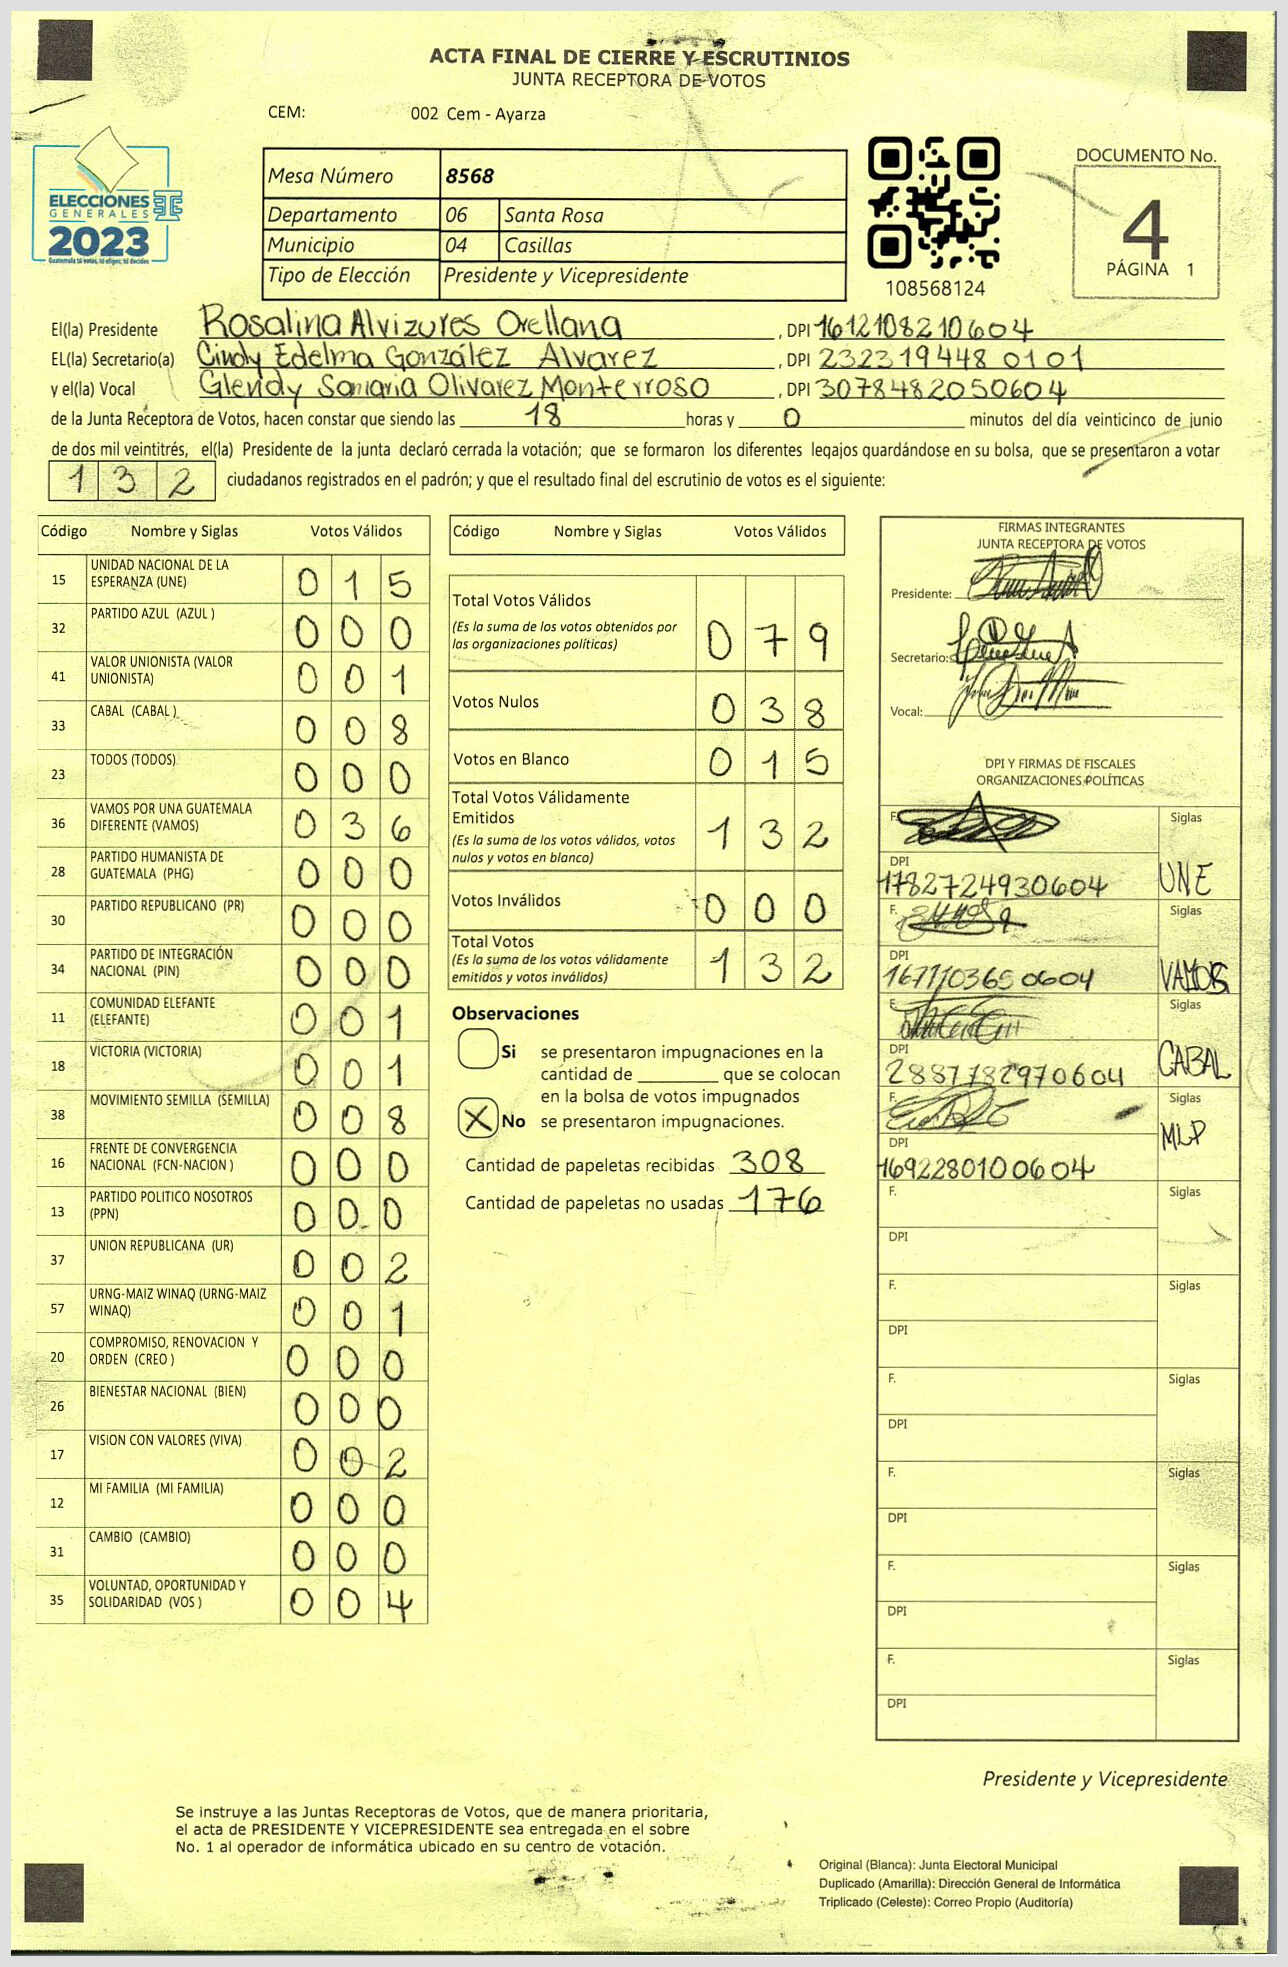 ACTA FINAL DE CIERRE Y ESCRUTINIOS
JUNTA RECEPTORA DE VOTOS
CEM: 002 Cem - Ayarza
ELECCIONES
GENERALES
2023
Guatemala tú votas, tú eliges, tú decides
Mesa Número 8568
Departamento 06 Santa Rosa
Municipio 04 Casillas
Tipo de Elección Presidente y Vicepresidente
108568124
DOCUMENTO No.
4
PÁGINA 1
El(la) Presidente Rosalina Alvizures Orellana , DPI 1612108210604
EL(la) Secretario(a) Cindy Edelma González Alvarez , DPI 2323194480101
y el(la) Vocal Glendy Samaria Olivarez Monterroso , DPI 3078482050604
de la Junta Receptora de Votos, hacen constar que siendo las 18 horas y 0 minutos del día veinticinco de junio
de dos mil veintitrés, el(la) Presidente de la junta declaró cerrada la votación; que se formaron los diferentes legajos guardándose en su bolsa, que se presentaron a votar
1 3 2 ciudadanos registrados en el padrón; y que el resultado final del escrutinio de votos es el siguiente:
Código Nombre y Siglas Votos Válidos
15 UNIDAD NACIONAL DE LA ESPERANZA (UNE) 0 1 5
32 PARTIDO AZUL (AZUL ) 0 0 0
41 VALOR UNIONISTA (VALOR UNIONISTA) 0 0 1
33 CABAL (CABAL ) 0 0 8
23 TODOS (TODOS) 0 0 0
36 VAMOS POR UNA GUATEMALA DIFERENTE (VAMOS) 0 3 6
28 PARTIDO HUMANISTA DE GUATEMALA (PHG) 0 0 0
30 PARTIDO REPUBLICANO (PR) 0 0 0
34 PARTIDO DE INTEGRACIÓN NACIONAL (PIN) 0 0 0
11 COMUNIDAD ELEFANTE (ELEFANTE) 0 0 1
18 VICTORIA (VICTORIA) 0 0 1
38 MOVIMIENTO SEMILLA (SEMILLA) 0 0 8
16 FRENTE DE CONVERGENCIA NACIONAL (FCN-NACION ) 0 0 0
13 PARTIDO POLITICO NOSOTROS (PPN) 0 0 0
37 UNION REPUBLICANA (UR) 0 0 2
57 URNG-MAIZ WINAQ (URNG-MAIZ WINAQ) 0 0 1
20 COMPROMISO, RENOVACION Y ORDEN (CREO ) 0 0 0
26 BIENESTAR NACIONAL (BIEN) 0 0 0
17 VISION CON VALORES (VIVA) 0 0 2
12 MI FAMILIA (MI FAMILIA) 0 0 0
31 CAMBIO (CAMBIO) 0 0 0
35 VOLUNTAD, OPORTUNIDAD Y SOLIDARIDAD (VOS ) 0 0 4
Código Nombre y Siglas Votos Válidos
Total Votos Válidos
(Es la suma de los votos obtenidos por las organizaciones políticas) 0 7 9
Votos Nulos 0 3 8
Votos en Blanco 0 1 5
Total Votos Válidamente Emitidos
(Es la suma de los votos válidos, votos nulos y votos en blanco) 1 3 2
Votos Inválidos 0 0 0
Total Votos
(Es la suma de los votos válidamente emitidos y votos inválidos) 1 3 2
Observaciones
Si se presentaron impugnaciones en la
cantidad de ________ que se colocan
en la bolsa de votos impugnados
X No se presentaron impugnaciones.
Cantidad de papeletas recibidas 308
Cantidad de papeletas no usadas 176
FIRMAS INTEGRANTES
JUNTA RECEPTORA DE VOTOS
Presidente:
Secretario:
Vocal:
DPI Y FIRMAS DE FISCALES
ORGANIZACIONES POLÍTICAS
F. Siglas
DPI 1782724930604 UNE
F. Siglas
DPI 1671103650604 VAMOS
F. Siglas
DPI 2887782970604 CABAL
F. Siglas
DPI 1692280100604 MLP
F. Siglas
DPI
F. Siglas
DPI
F. Siglas
DPI
F. Siglas
DPI
F. Siglas
DPI
F. Siglas
DPI
Presidente y Vicepresidente
Se instruye a las Juntas Receptoras de Votos, que de manera prioritaria,
el acta de PRESIDENTE Y VICEPRESIDENTE sea entregada en el sobre
No. 1 al operador de informática ubicado en su centro de votación.
Original (Blanca): Junta Electoral Municipal
Duplicado (Amarilla): Dirección General de Informática
Triplicado (Celeste): Correo Propio (Auditoría)